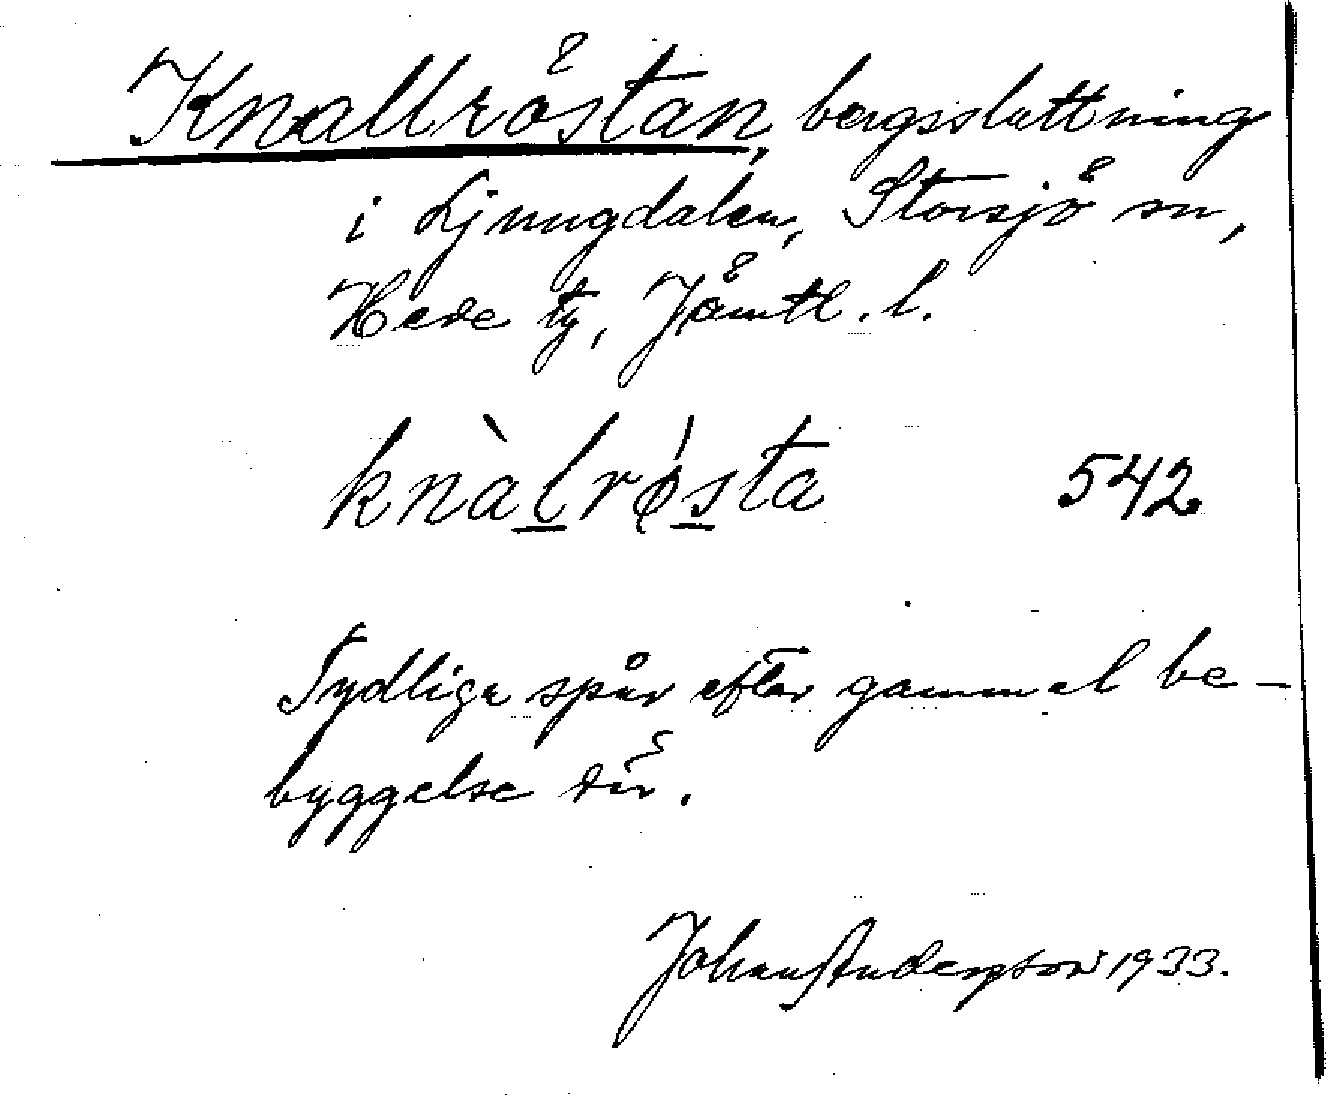 Knallröstan, bergssluttning
i Ljungdalen, Storsjö sn,
Hede tg, Jämtl. l.
knàl̲rǿs̲ta 542
Tydliga spår efter gammal be-
byggelse där.
Johan Anderson 1933.